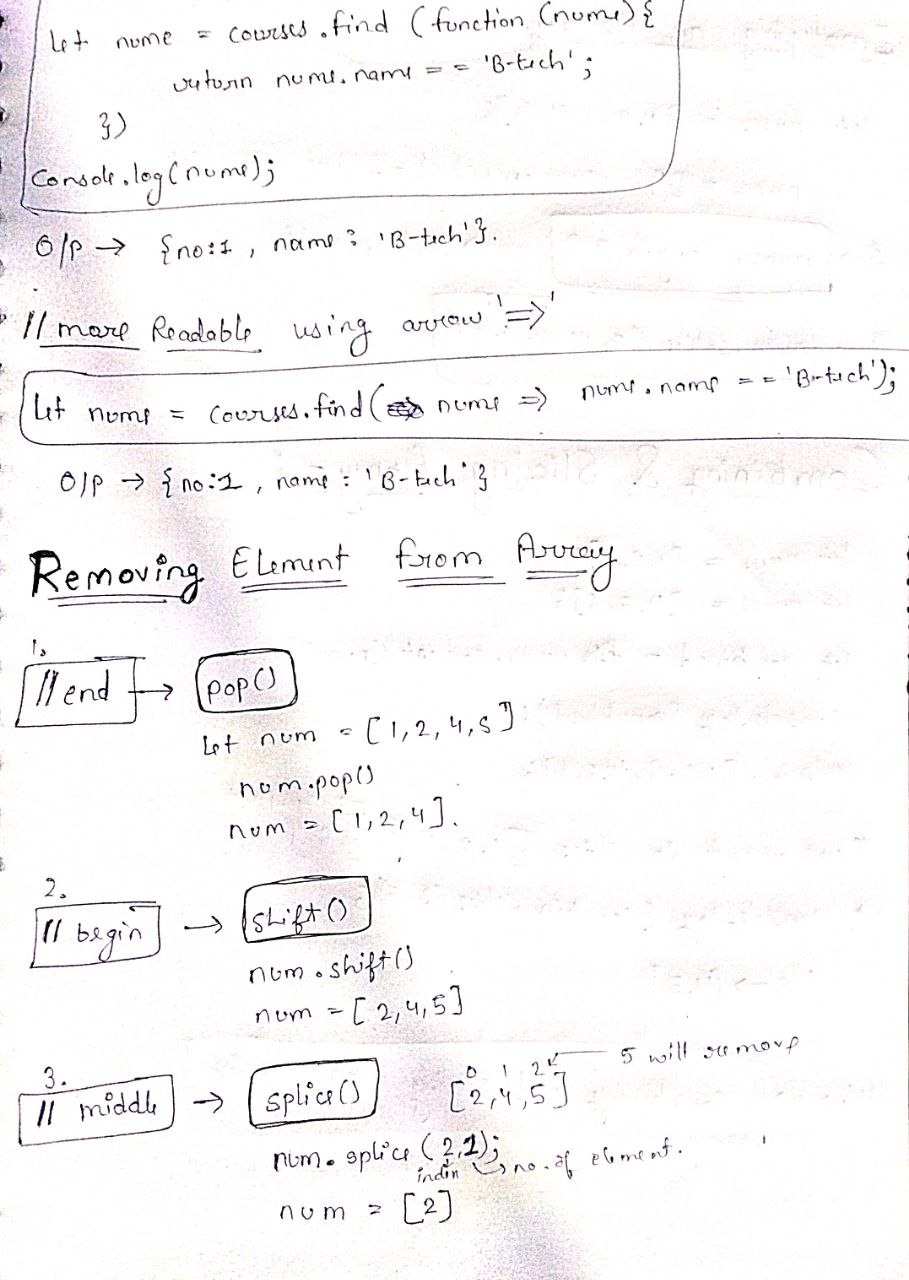 let nume = courses.find (function (nume) {
return nume.name == 'B-tech';
})
Console.log(nume);
O/P → {no:1, name: 'B-tech'}.
// more Readable using arrow '=>'
let nume = courses.find( nume => nume.name == 'B-tech');
O/P → {no:1, name: 'B-tech'}
Removing Element from Array
1.
// end → pop()
let num = [1,2,4,5]
num.pop()
num = [1,2,4].
2.
// begin → shift()
num.shift()
num = [2,4,5]
0 1 2 ← 5 will remove
3.
// middle → splice() [2,4,5]
num.splice(2,1);
index → no. of element.
num = [2]